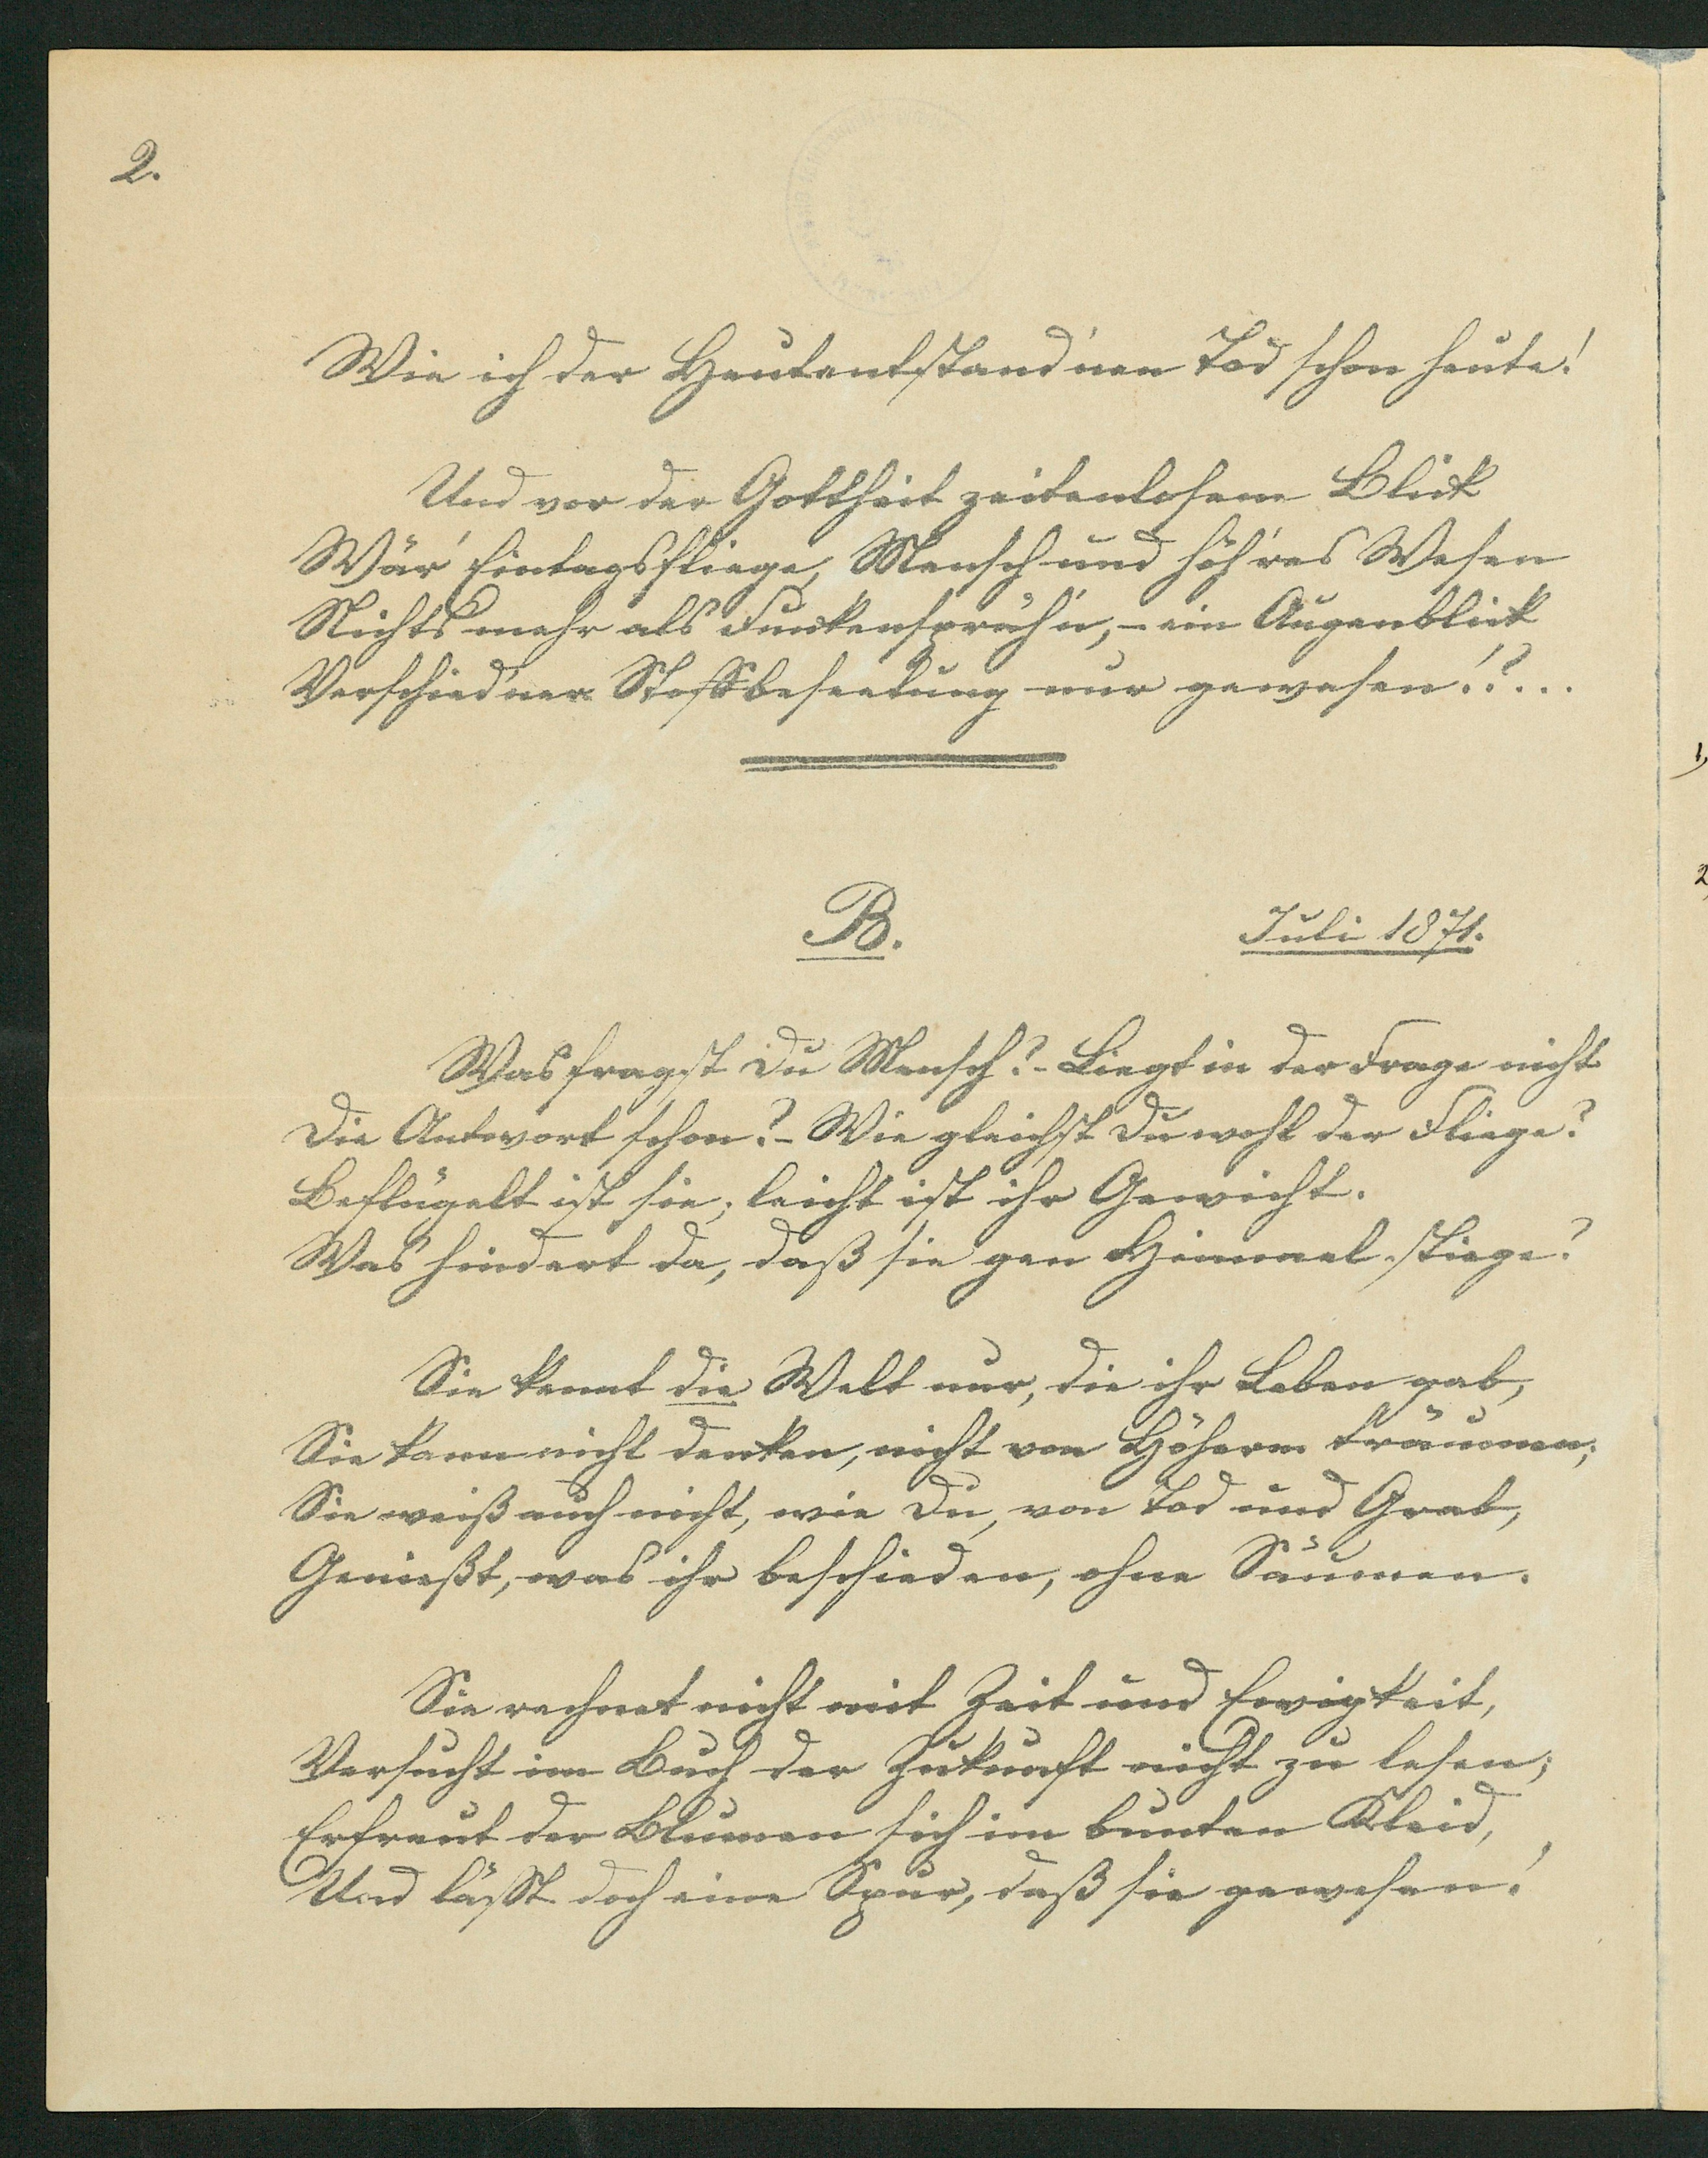 2.
Wie ich der Heutentstand'nen Tod schon heute!
Und vor der Gottheit zeitenlosem Blick
Wär' Eintagsfliege, Mensch und höh'res Wesen
Nichts mehr als Funkensprüh'n, – ein Augenblick
Verschied'ner Stoffbeseelung nur gewesen!?...
B.
Juli 1871.
Was fragst Du Mensch? – Liegt in der Frage nicht
Die Antwort schon? – Wie gleichst Du wohl der Fliege?
Beflügelt ist sie; leicht ist ihr Gewicht.
Was hindert da, daß sie gen Himmel stiege?
Sie kennt die Welt nur, die ihr Leben gab,
Sie kann nicht denken, nicht von Höherm träumen;
Sie weiß auch nicht, wie Du, von Tod und Grab,
Genießt, was ihr beschieden, ohne Säumen.
Sie rechnet nicht mit Zeit und Ewigkeit,
Versucht im Buch der Zukunft nicht zu lesen;
Erfreut der Blumen sich im bunten Kleid,
Und läßt doch eine Spur, daß sie gewesen!